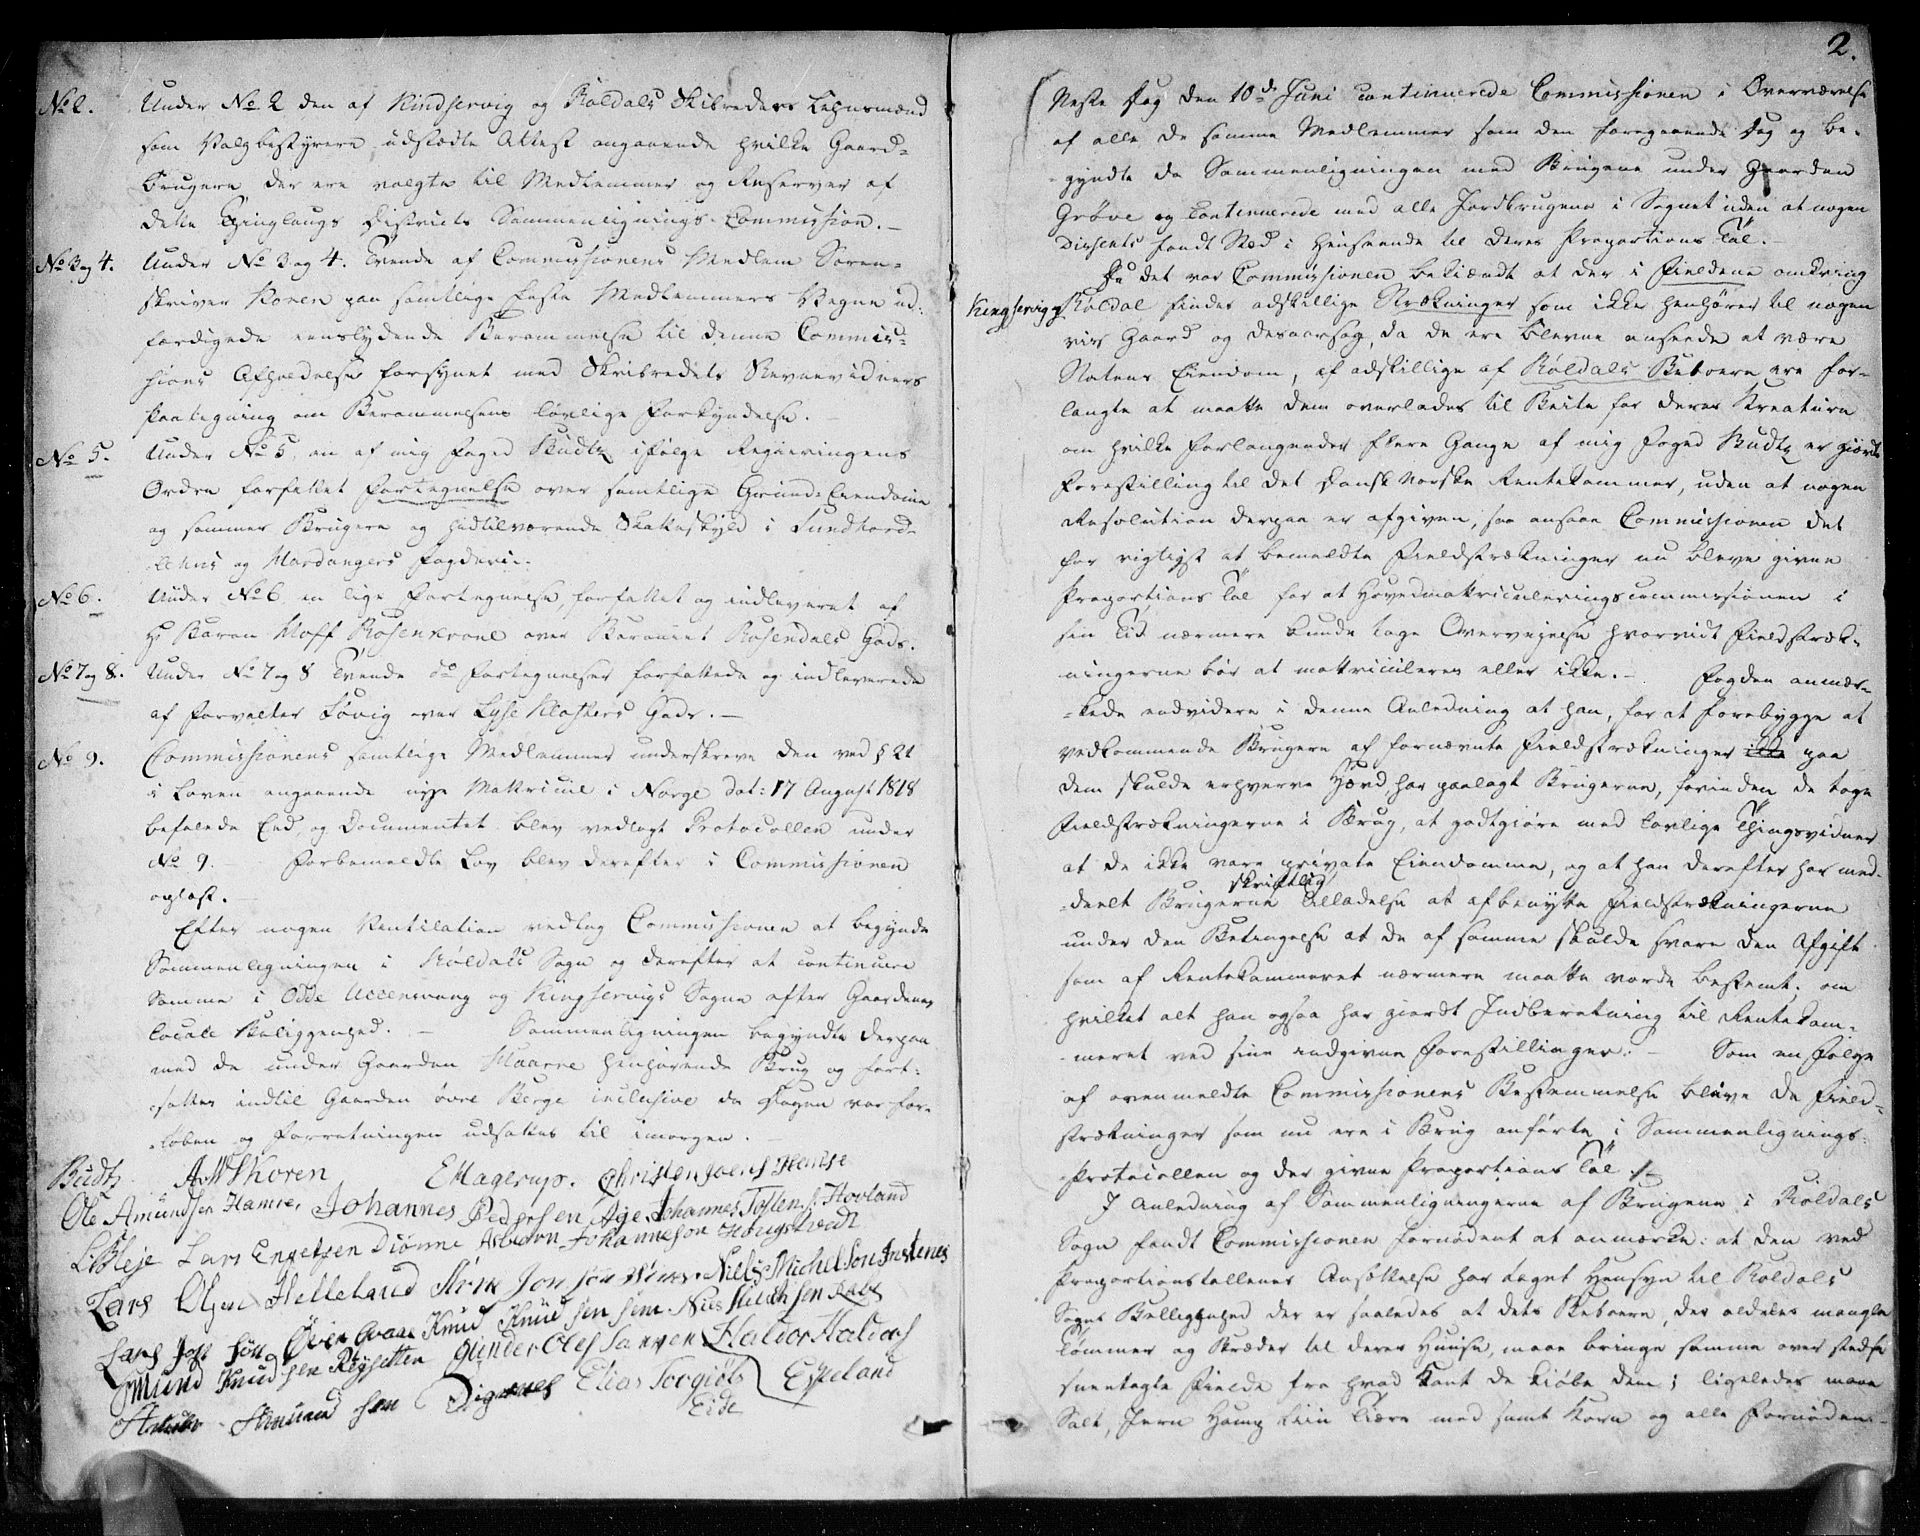 No 2. Under No 2 den af Kindservig og Roldals Skibreders Lehnsmænd
som Valgbestyrere udstædte Attest angaaende hvilke Gaard-
brugere der ere valgte til Medlemmer og Reserver af
dette Thinglaugs Districts Sammenlignings-Commission. –
No 3 og 4. Under No 3 og 4. Tvende af Commissionens Medlem Soren-
skriver Koren paa samtlige faste Medlemmers Vegne ud-
færdigede eenslydende Berammelse til denne Commis-
sions Afholdelse forsynet med Skibredets Stevnevidners
Paategning om Berammelsens lovlige Forkyndelse. –
No 5. Under No 5, en af mig Foged Budtz ifølge Regieringens
Ordre forfattet Fortegnelse over samtlige Grund-Eiendomme
og sammes Brugere og hidtilværende Skatteskyld i Sundhord-
lehns og Hardangers Fogderie.
No 6. Under No 6 en lige Fortegnelse, forfattet og indleveret af
Hr Baron Hoff Rosenkrone over Baroniet Rosendals Gods.
No 7 og 8. Under No 7 og 8 Tvende do Fortegnelser forfattede og indleverede
af Forvalter Løvig over Lyse Klosters Gods. –
No 9. Commissionens samtlige Medlemmer underskreve den ved § 21
i Loven angaaende nye Mattricul i Norge dat: 17 August 1818
befalede Eed, og Documentet blev vedlagt Protocollen under
No 9. – Forbemeldte Lov blev derefter i Commissionen
oplæst. –
Efter nogen Ventilation vedtog Commissionen at begynde
Sammenligningen i Røldals Sogn og derefter at continuere
Samme i Odde Ullensvang og Kingservigs Sogne efter Gaardenes
locale Beliggenhed. – Sammenligningen begyndte derpaa
med de under Gaarden Haarre henhørende Brug og fort-
sattes indtil Gaarden øvre Berge inclusive da Dagen var for-
løben og Forretningen udsattes til imorgen. –
Budtz. AWKoren EHagerup. Christen Joens Hamre
Ole Amundsen Hamre, Johannes Pedersen Age, Johannes Tosten S. Hovland
LBleje Lars Engelsen Diønne Asbiørn Johanneson Hougstvedt
Lars Olsen Helleland Jon søn Niels Michelson Instenes
Lars Joh søn Øvre Qvale Knud Knud sen
Omund Knudsen Reysetten Gunder Oles Sanven Haldor Haldors
Amund sen Digranes Elias Torgiøls Espeland
Eide
2.
Neste Dag den 10de Juni continuerede Commissionen i Overværelse
af alle de samme Medlemmer som den foregaaende Dag og be-
gyndte da Sammenligningen med Brugene under Gaarden
Grøve og continuerede med alle Jordbrugene i Sognet uden at nogen
Dissents fandt Sted i Henseende til deres Proportions Tal. –
Da det var Commissionen bekiendt at der i Fieldene omkring
Kingservig og Røldal findes adskillige Strækninger som ikke henhører til nogen
vis Gaard og desaarsag, da de ere blevne ansete at være
Statens Eiendom, af adskillige af Røldals Beboere ere for-
langte at maatte dem overlades til Beite for deres Kreature
om hvilke Forlangender flere Gange af mig Foged Budtz er giordt
Forestilling til det Dansk Norske Rentekammer, uden at nogen
Resolution derpaa er afgiven, saa ansaae Commissionen det
for rigtigst at bemeldte Fieldstrækninger nu bleve givne
Proportions Tal for at Hovedmattriculeringscommissionen i
sin Tid nærmere kunde tage Overveielse hvorvidt Fieldstræk-
ningerne bør at mattriculeres eller ikke. – Fogden anmær-
kede endvidere i denne Anledning at han, for at forebygge at
vedkommende Brugere af fornævnte Fieldstrækninger paa
dem skulde erhverve Hævd, har paalagt Brugerne, forinden de toge
Fieldstrækningerne i Brug, at godtgiøre med lovlige Thingsvidner
at de ikke vare private Eiendomme, og at han derefter har med-
deelt Brugerne skriftlig Tilladelse at afbenytte Fieldstrækningerne
under den Betingelse at de af samme skulde svare den Afgift
som af Rentekammeret nærmere maatte vorde bestemt, om
hvilket alt han ogsaa har giordt Indberetning til Rentekam-
meret ved sine indgivne Forestillinger. – Som en Følge
af ovenmeldte Commissionens Bestemmelse bleve de Field-
strækninger som nu ere i Brug anførte i Sammenlignings-
Protocollen og der givne Proportions Tal. –
I Anledning af Sammenligningerne af Brugene i Roldals
Sogn fandt Commissionen fornødent at anmærke: at den ved
Proportionstallenes Ansættelse har taget Hensyn til Roldals
Sogns Beliggenhed der er saaledes at dets Beboere, der aldeles mangle
Tømmer og Bræder til deres Huuse, maae bringe samme over stedse
sneelagte Fielde fra hvad Kant de kiøbe dem; ligeledes maae
Salt, Jern Hamp Liin Tiære med samt Korn og alle Fornøden-